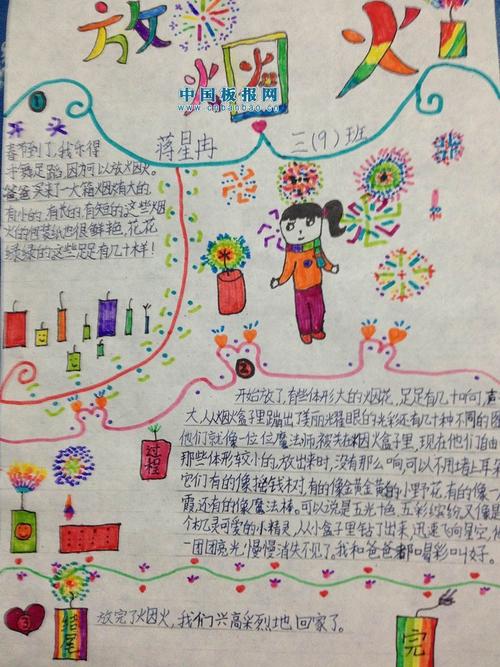 放烟火
中国板报网
www.cnbanbao.cn
蒋星冉 三(9)班
①
开头
春节到了,我乐得
手舞足蹈,因为可以放烟火。
爸爸买来了一大箱烟火有大的,
有小的,有长的,有短的,这些烟
火的包装纸也很鲜艳,花花
绿绿的这些足足有几十样!
②
过程
开始放了,有些体形大的烟花,足足有几十响,声
大,从烟火盒里蹦出了美丽光耀眼的光彩还有几十种不同的图
他们就像一位位魔法师被关在烟火盒子里,现在他们自由
那些体形较小的,放出来时,没有那么响,可以不用堵上耳朵
它们有的像摇钱树,有的像金黄金黄的小野花,有的像一
霞,还有的像魔法棒。可以说是五光十色,五彩缤纷,又像是
个个机灵可爱的小精灵,从小盒子里钻了出来,迅速飞向星空,
一团团亮光,慢慢消失不见了。我和爸爸都唱彩叫好。
③
结尾
放完了烟火,我们兴高采烈地回家了。
完